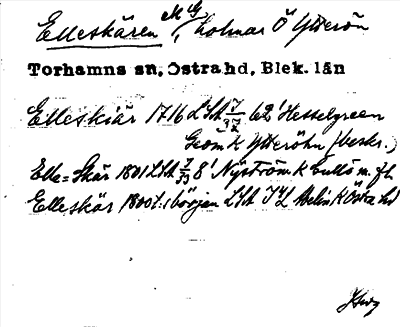 Elleskären MG, holmar Ö Ytterön
Torhamns sn, Östra hd, Blek. län
Elleskiär 1716 LSA 7/32 62 Hesselgreen
Geom K Ytteröhn (beskr.)
Elle=Skär 1801 LSA 7/33 8 Nyström K m. fl.
Elleskär 1800t:s början LSA K Östra hd